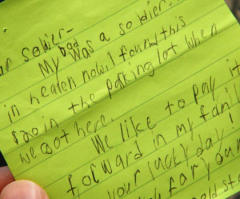 ar soldier-
My Dad was a soldier.
in heaven now. I found this
$20 in the parking lot when
we got here. We like to pay it
forward in my fami
your lucky day!
k for your
old sta